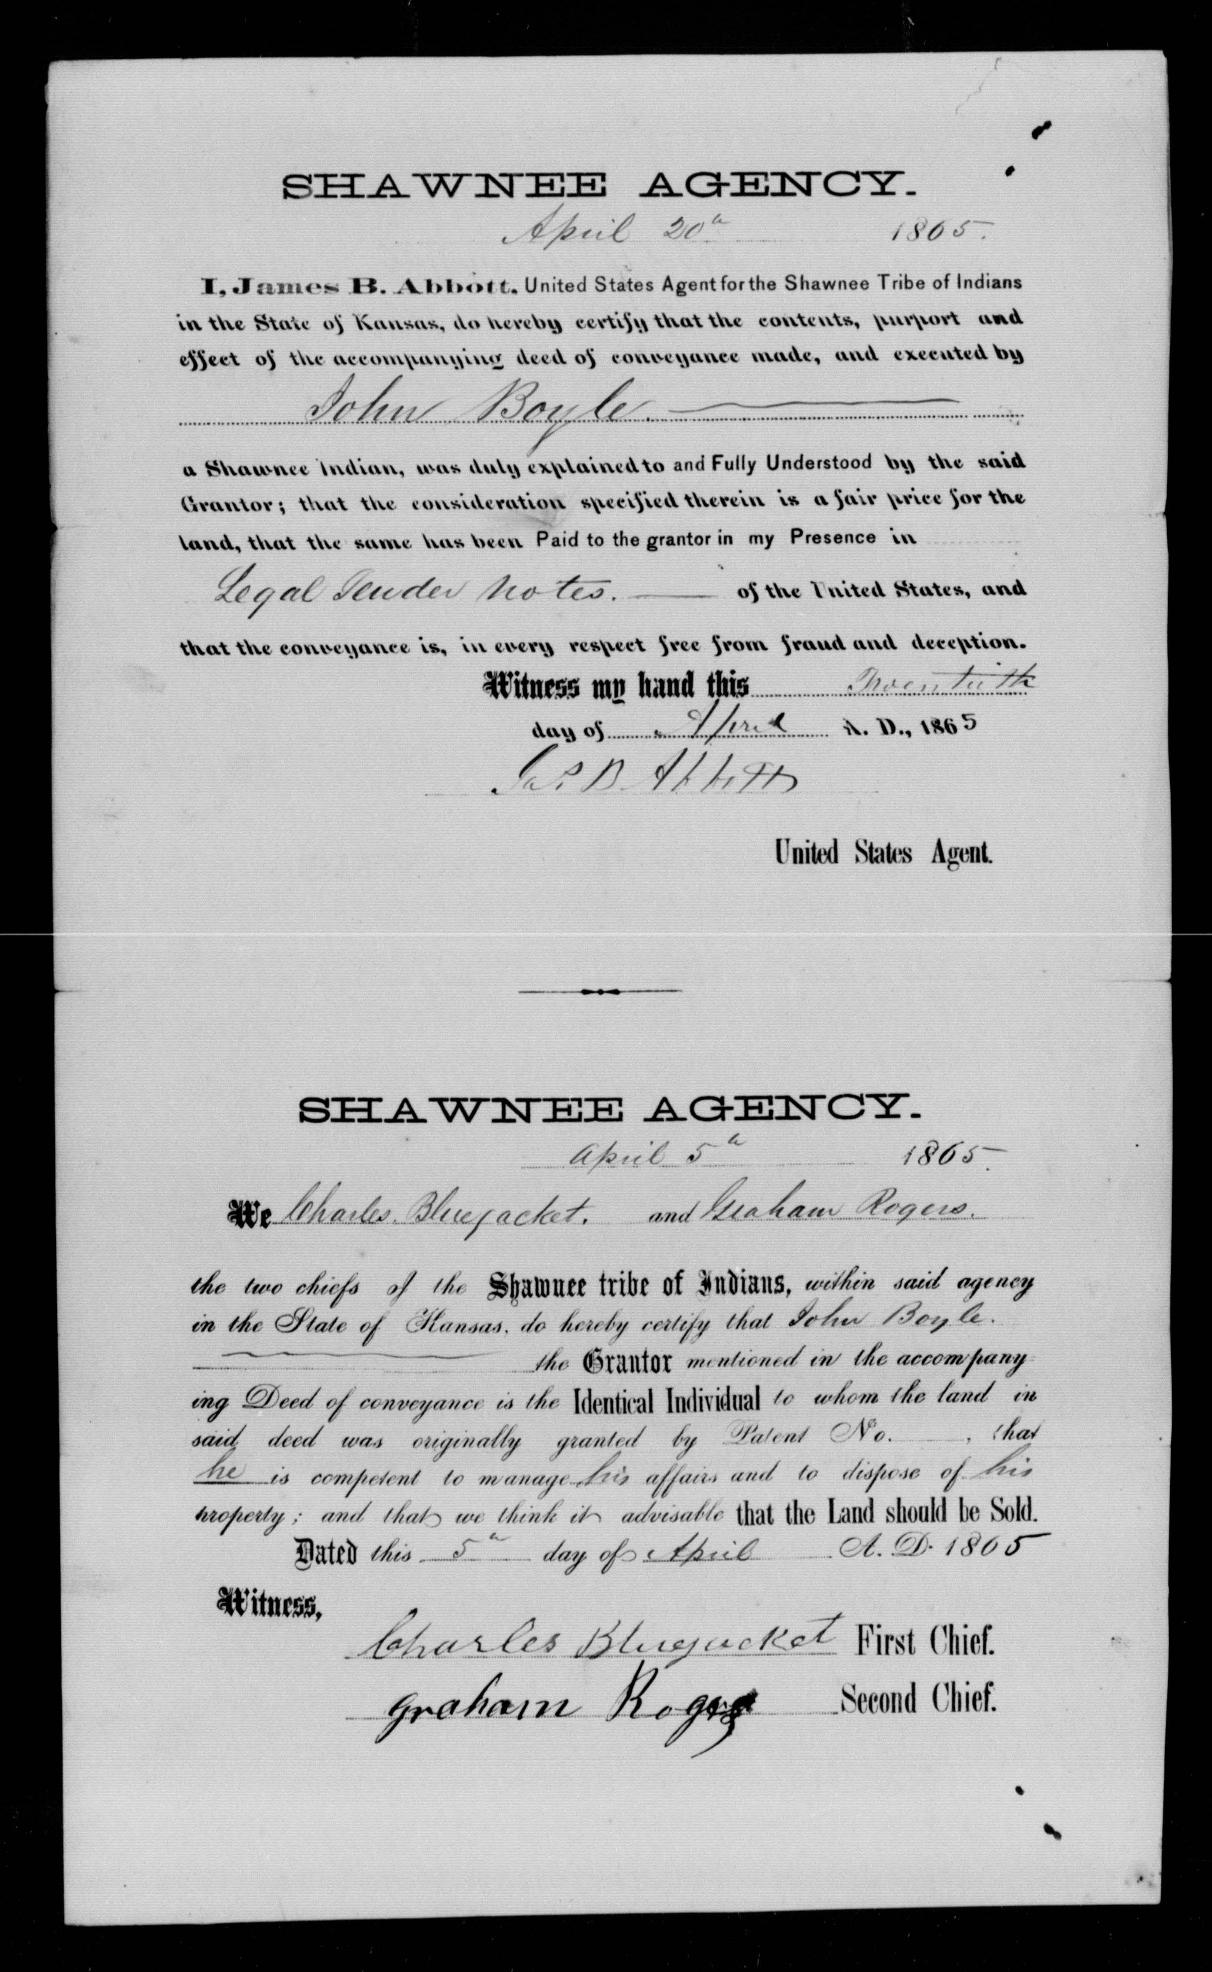 SHAWNEE AGENCY.
April 20th 1865.
I, James B. Abbott, United States Agent for the Shawnee Tribe of Indians
in the State of Kansas, do hereby certify that the contents, purport and
effect of the accompanying deed of conveyance made, and executed by
John Boyle.
a Shawnee Indian, was duly explained to and Fully Understood by the said
Grantor; that the consideration specified therein is a fair price for the
land, that the same has been Paid to the grantor in my Presence in
Legal Tender Notes. of the United States, and
that the conveyance is, in every respect free from fraud and deception.
Witness my hand this Twentieth
day of April A. D., 1865
Jas B Abbott
United States Agent.
SHAWNEE AGENCY.
April 5th 1865.
We Charles Bluejacket. and Graham Rogers.
the two chiefs of the Shawnee tribe of Indians, within said agency
in the State of Kansas, do hereby certify that John Boyle.
the Grantor mentioned in the accompany-
ing Deed of conveyance is the Identical Individual to whom the land in
said deed was originally granted by Patent No. , that
he is competent to manage his affairs and to dispose of his
property; and that we think it advisable that the Land should be Sold.
Dated this 5th day of April A. D. 1865
Witness,
Charles Bluejacket First Chief.
Graham Rogers Second Chief.